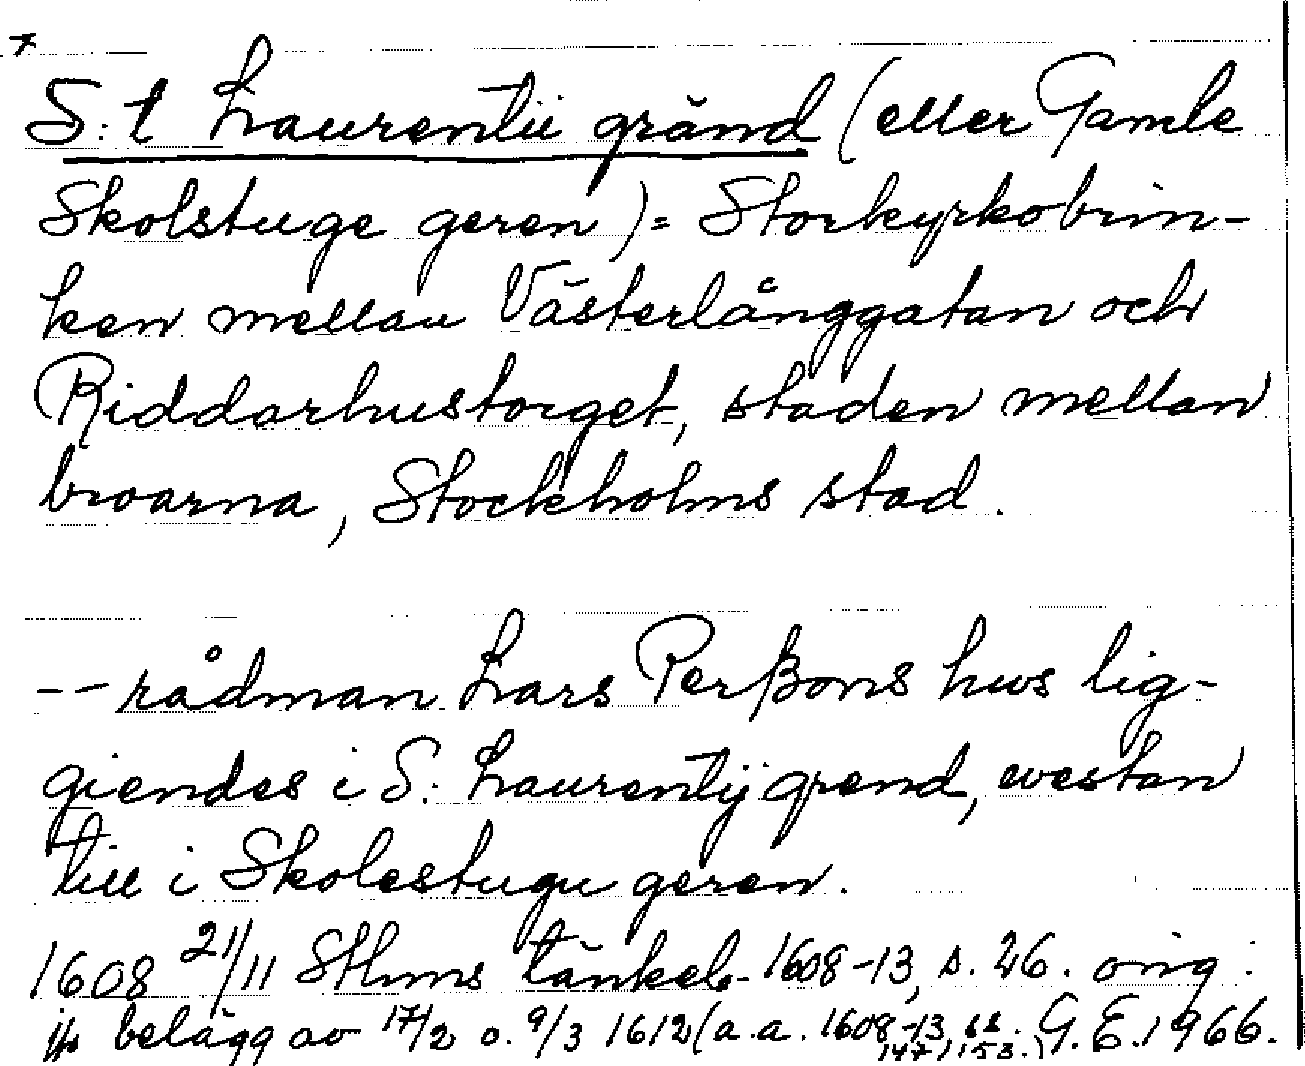 S:t Laurentii gränd (eller Gamle
Skolstuge geren) = Storkyrkobrin-
ken mellan Västerlånggatan och
Riddarhustorget, staden mellan
broarna, Stockholms stad.
-- rådman Lars Perßons hws lig-
giendes i S: Laurentij grend, westan
till i Skolestugu geren.
1608 21/11 Sthms tänkeb. 1608-13, s. 26. orig.
jfr belägg av 17/2 o. 9/3 1612 (a.a. 1608-13, ss. 147, 153.) G.E. 1966.